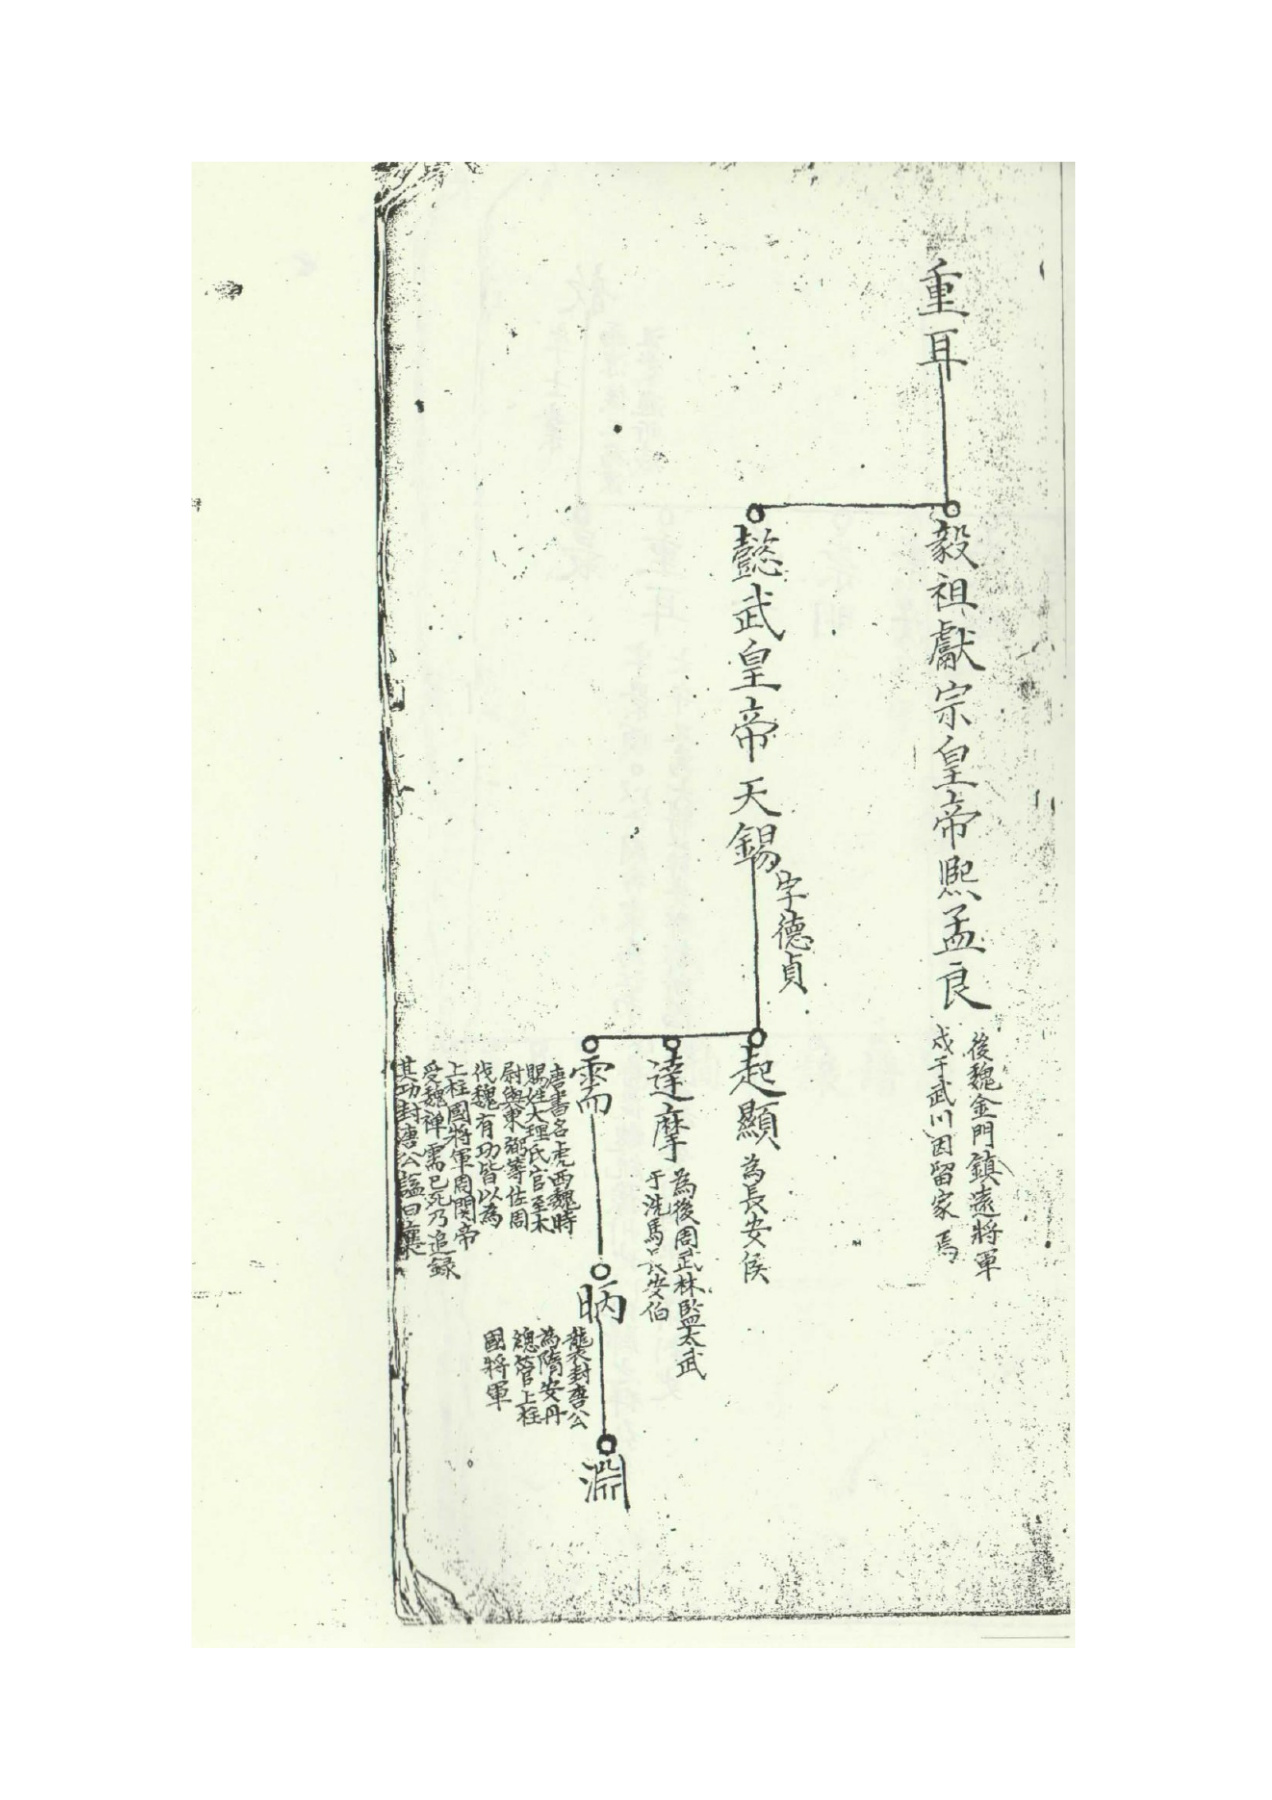 重耳
毅祖獻宗皇帝熙孟良
後魏金門鎮遠將軍
戍于武川因留家焉
懿武皇帝天錫
字德貞
起顯
為長安侯
達摩
為後周武林監太武
于洗馬長安伯
雲
唐書名虎西魏時
賜姓大理氏官至木
尉與東弼等佐周
伐魏有功皆以為
上柱國將軍周閔帝
受魏禅需已死乃追録
其功封唐公諡曰襄
昞
襲封唐公
為隋安丹
總管上柱
國將軍
淵